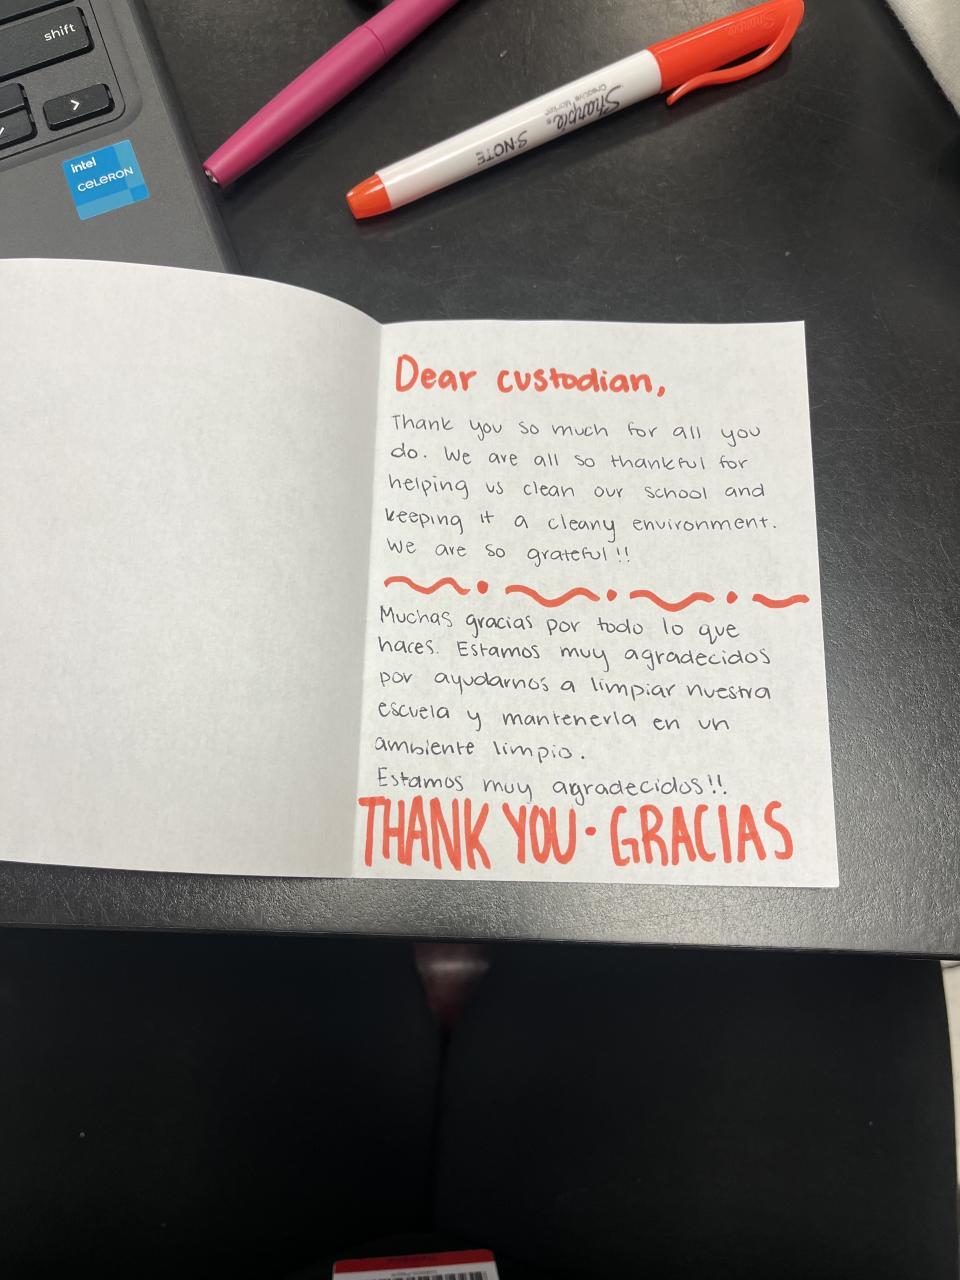 shift
>
intel
CELERON
Sharpie
Sharpie®
Creative Market
S·NOTE
Dear custodian,
Thank you so much for all you
do. We are all so thankful for
helping us clean our school and
keeping it a cleany environment.
We are so grateful!!
Muchas gracias por todo lo que
haces. Estamos muy agradecidos
por ayudarnos a limpiar nuestra
escuela y mantenerla en un
ambiente limpio.
Estamos muy agradecidos!!
THANK YOU · GRACIAS